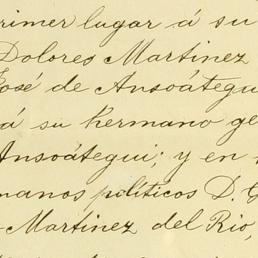 primer lugar á su
Dolores Martinez
José de Ansoátegui
á su hermano ge
Ansoátegui; y en
manos políticos D. G
Martinez del Rio,